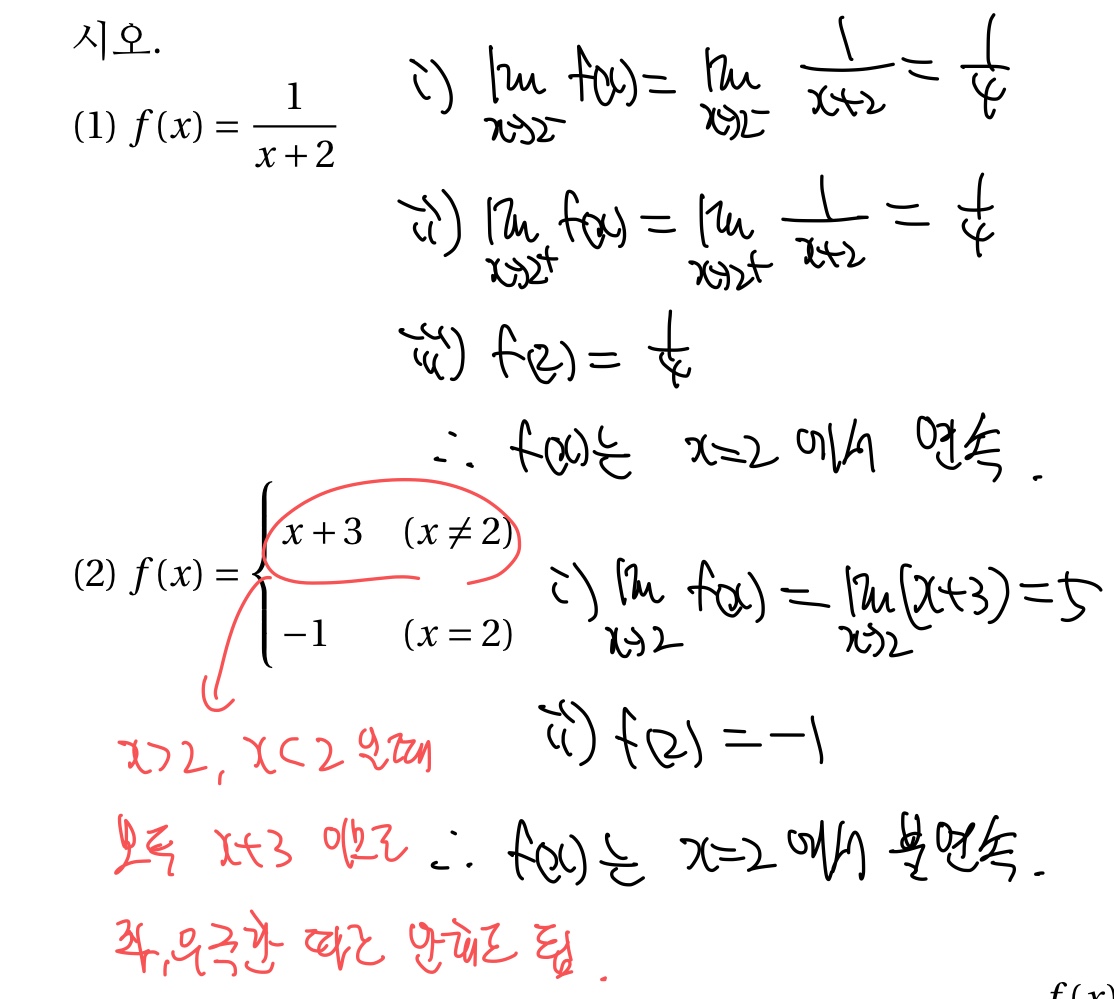 시오.
(1) f(x) = 1/(x+2)
i) lim_{x→2-} f(x) = lim_{x→2-} 1/(x+2) = 1/4
ii) lim_{x→2+} f(x) = lim_{x→2+} 1/(x+2) = 1/4
iii) f(2) = 1/4
∴ f(x)는 x=2 에서 연속.
(2) f(x) = { x+3 (x≠2)
-1 (x=2)
i) lim_{x→2} f(x) = lim_{x→2} (x+3) = 5
ii) f(2) = -1
x>2, x<2 일때
모두 x+3 이므로
좌,우극한 따로 안해도 됨.
∴ f(x)는 x=2 에서 불연속.
f(x)